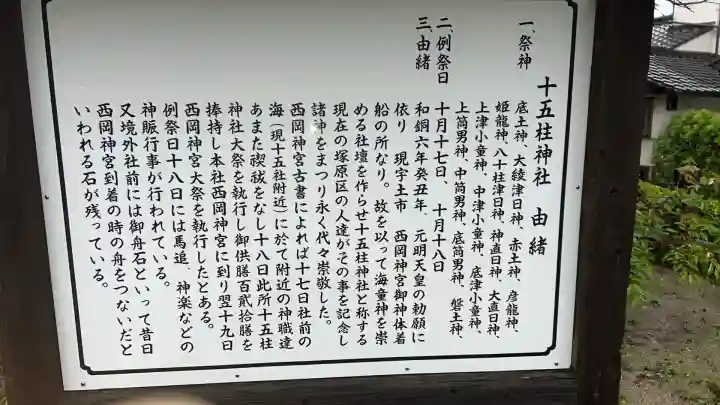 十五柱神社 由緒
一、祭神
底土神、大綾津日神、赤土神、彦龍神、
姫龍神、八十柱津日神、神直日神、大直日神、
上津小童神、中津小童神、底津小童神、
上筒男神、中筒男神、底筒男神、磐土神、
二、例祭日
十月十七日、十月十八日
三、由緒
和銅六年癸丑年、元明天皇の勅願に
依り 現宇土市 西岡神宮御神体着
船の所なり。故を以って海童神を崇
める社壇を作らせ十五柱神社と称する
現在の塚原区の人達がその事を記念し
諸神をまつり永く代々崇敬した。
西岡神宮古書によれば十七日社前の
海(現十五社附近)に於て附近の神職達
あまた禊祓をなし十八日此所十五柱
神社大祭を執行し御供膳百貮拾膳を
捧持し本社西岡神宮に到り翌十九日
西岡神宮大祭を執行したとある。
例祭日十八日には馬追、神楽などの
神賑行事が行われている。
又境外社前には御舟石といって昔日
西岡神宮到着の時の舟をつないだと
いわれる石が残っている。